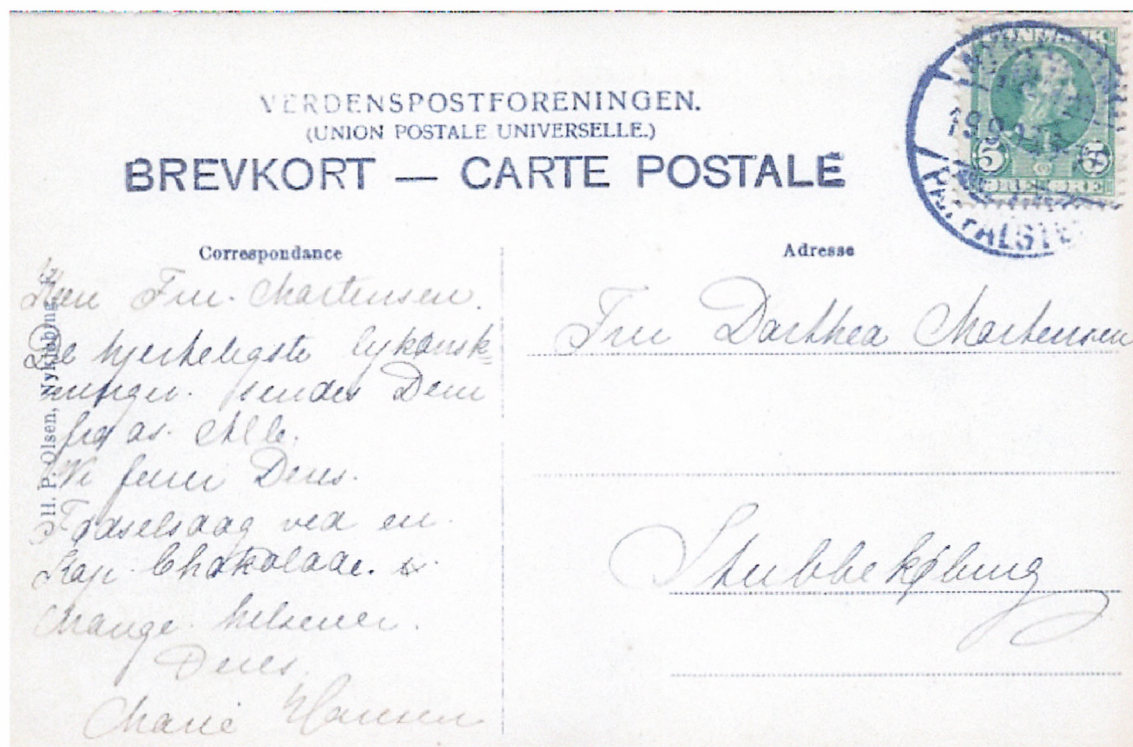 VERDENSPOSTFORENINGEN.
(UNION POSTALE UNIVERSELLE.)
BREVKORT — CARTE POSTALE
DANMARK
5 5
ØRE ØRE
PAA FALSTER
Correspondance
Kære Fru. Martensen.
De hjerteligste lykønsk
ninger. sendes Dem
fra os. Alle.
Vi feirer Deres.
Fødselsdag ved en
Kop. Chokolade.
Mange. hilsener.
Deres.
Marie Hansen
H. P. Olsen, Nykjøbing
Adresse
Fru Dorthea Mortensen
Stubbekøbing